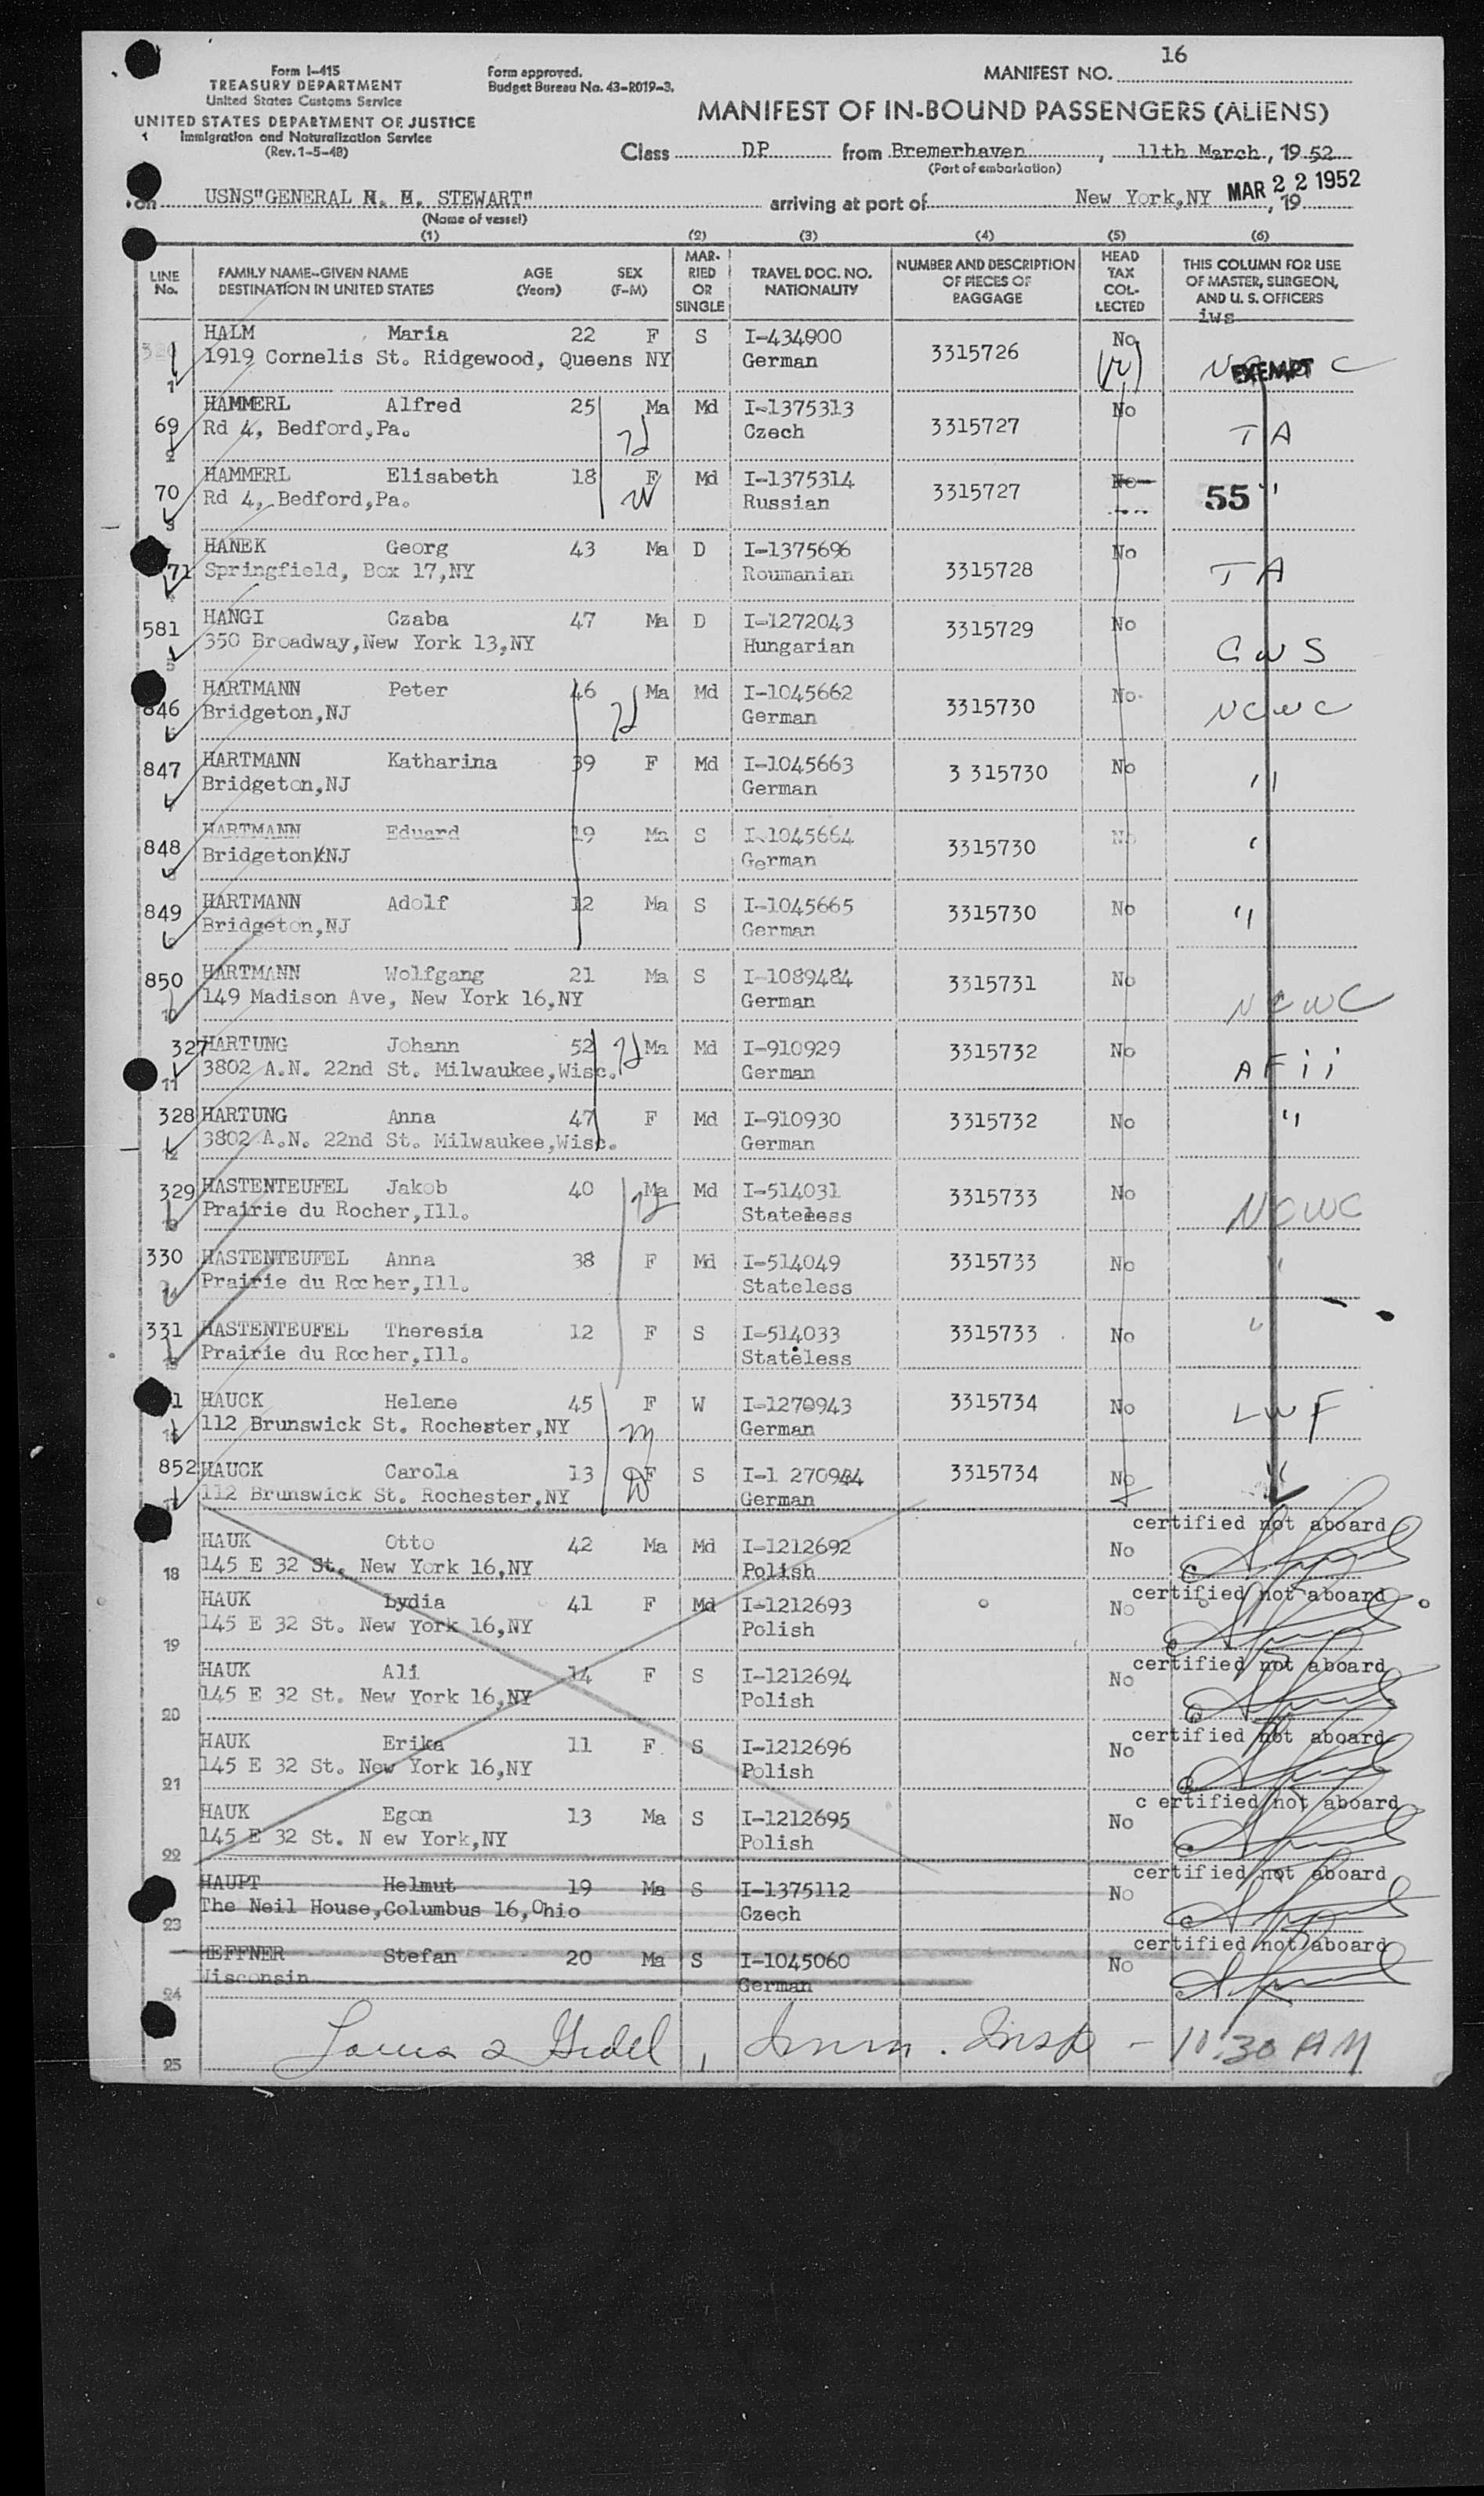 Form I-415
TREASURY DEPARTMENT
United States Customs Service
UNITED STATES DEPARTMENT OF JUSTICE
Immigration and Naturalization Service
(Rev. 1-5-48)
Form approved.
Budget Bureau No. 43-R019-3.
MANIFEST NO. 16
MANIFEST OF IN-BOUND PASSENGERS (ALIENS)
Class DP from Bremerhaven, 11th March, 1952
(Port of embarkation)
on USNS"GENERAL M. M. STEWART" arriving at port of New York,NY MAR 22 1952, 19
(Name of vessel)
(1) (2) (3) (4) (5) (6)
LINE No. FAMILY NAME--GIVEN NAME DESTINATION IN UNITED STATES AGE (Years) SEX (F-M) MARRIED OR SINGLE TRAVEL DOC. NO. NATIONALITY NUMBER AND DESCRIPTION OF PIECES OF BAGGAGE HEAD TAX COLLECTED THIS COLUMN FOR USE OF MASTER, SURGEON, AND U. S. OFFICERS
iws
HALM Maria 22 F S I-434900 3315726 No
1 1919 Cornelis St. Ridgewood, Queens NY German EXEMPT
69 HAMMERL Alfred 25 Ma Md I-1375313 3315727 No
2 Rd 4, Bedford,Pa. Czech T A
70 HAMMERL Elisabeth 18 F Md I-1375314 3315727 No
3 Rd 4, Bedford,Pa. Russian 55 "
71 HANEK Georg 43 Ma D I-1375696 3315728 No
Springfield, Box 17,NY Roumanian T A
581 HANGI Czaba 47 Ma D I-1272043 3315729 No
5 350 Broadway,New York 13,NY Hungarian C W S
846 HARTMANN Peter 46 Ma Md I-1045662 3315730 No
Bridgeton,NJ German NCWC
847 HARTMANN Katharina 39 F Md I-1045663 3 315730 No
Bridgeton,NJ German "
848 HARTMANN Eduard 19 Ma S I-1045664 3315730 No
Bridgeton,NJ German
849 HARTMANN Adolf 12 Ma S I-1045665 3315730 No
Bridgeton,NJ German "
850 HARTMANN Wolfgang 21 Ma S I-1089484 3315731 No
10 149 Madison Ave, New York 16,NY German NCWC
327 HARTUNG Johann 52 Ma Md I-910929 3315732 No
11 3802 A.N. 22nd St. Milwaukee,Wisc. German A F i i
328 HARTUNG Anna 47 F Md I-910930 3315732 No "
12 3802 A.N. 22nd St. Milwaukee,Wisc. German
329 HASTENTEUFEL Jakob 40 Ma Md I-514031 3315733 No
Prairie du Rocher,Ill. Stateless NCWC
330 HASTENTEUFEL Anna 38 F Md I-514049 3315733 No "
Prairie du Rocher,Ill. Stateless
331 HASTENTEUFEL Theresia 12 F S I-514033 3315733 No "
Prairie du Rocher,Ill. Stateless
HAUCK Helene 45 F W I-1270943 3315734 No LWF
112 Brunswick St. Rochester,NY German
852 HAUCK Carola 13 F S I-1 270944 3315734 No "
112 Brunswick St. Rochester,NY German
certified not aboard
HAUK Otto 42 Ma Md I-1212692 No
18 145 E 32 St. New York 16,NY Polish
certified not aboard
HAUK Lydia 41 F Md I-1212693 No
19 145 E 32 St. New York 16,NY Polish
certified not aboard
HAUK Ali 14 F S I-1212694 No
20 145 E 32 St. New York 16,NY Polish
certified not aboard
HAUK Erika 11 F S I-1212696 No
21 145 E 32 St. New York 16,NY Polish
c ertified not aboard
HAUK Egon 13 Ma S I-1212695 No
22 145 E 32 St. N ew York,NY Polish
certified not aboard
HAUPT Helmut 19 Ma S I-1375112 No
23 The Neil House,Columbus 16,Ohio Czech
certified not aboard
HEFFNER Stefan 20 Ma S I-1045060 No
24 Wisconsin German
25 Immn. Insp - 10:30 AM